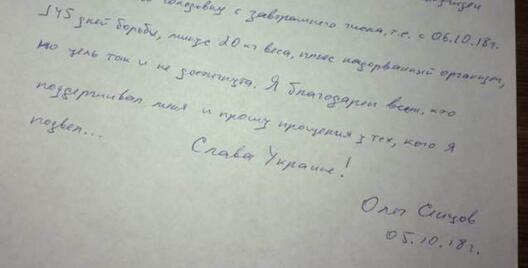 голодовку с завтрашнего числа, т.е. с 06.10.18г.
145 дней борьбы, минус 20 кг веса, плюс надорванный организм,
но цель так и не достигнута. Я благодарен всем, кто
поддерживал меня и прошу прощения у тех, кого я
подвел...
Слава Украине!
Олег Сенцов
05.10.18г.